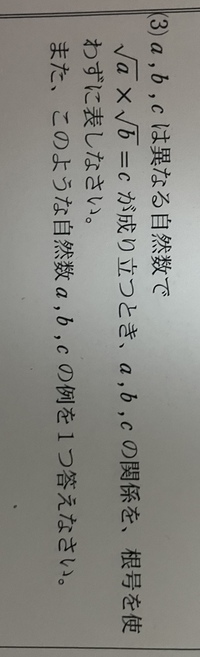 (3) a , b , c は異なる自然数で
√a × √b = c が成り立つとき、a , b , c の関係を、根号を使
わずに表しなさい。
また、このような自然数 a , b , c の例を 1 つ答えなさい。